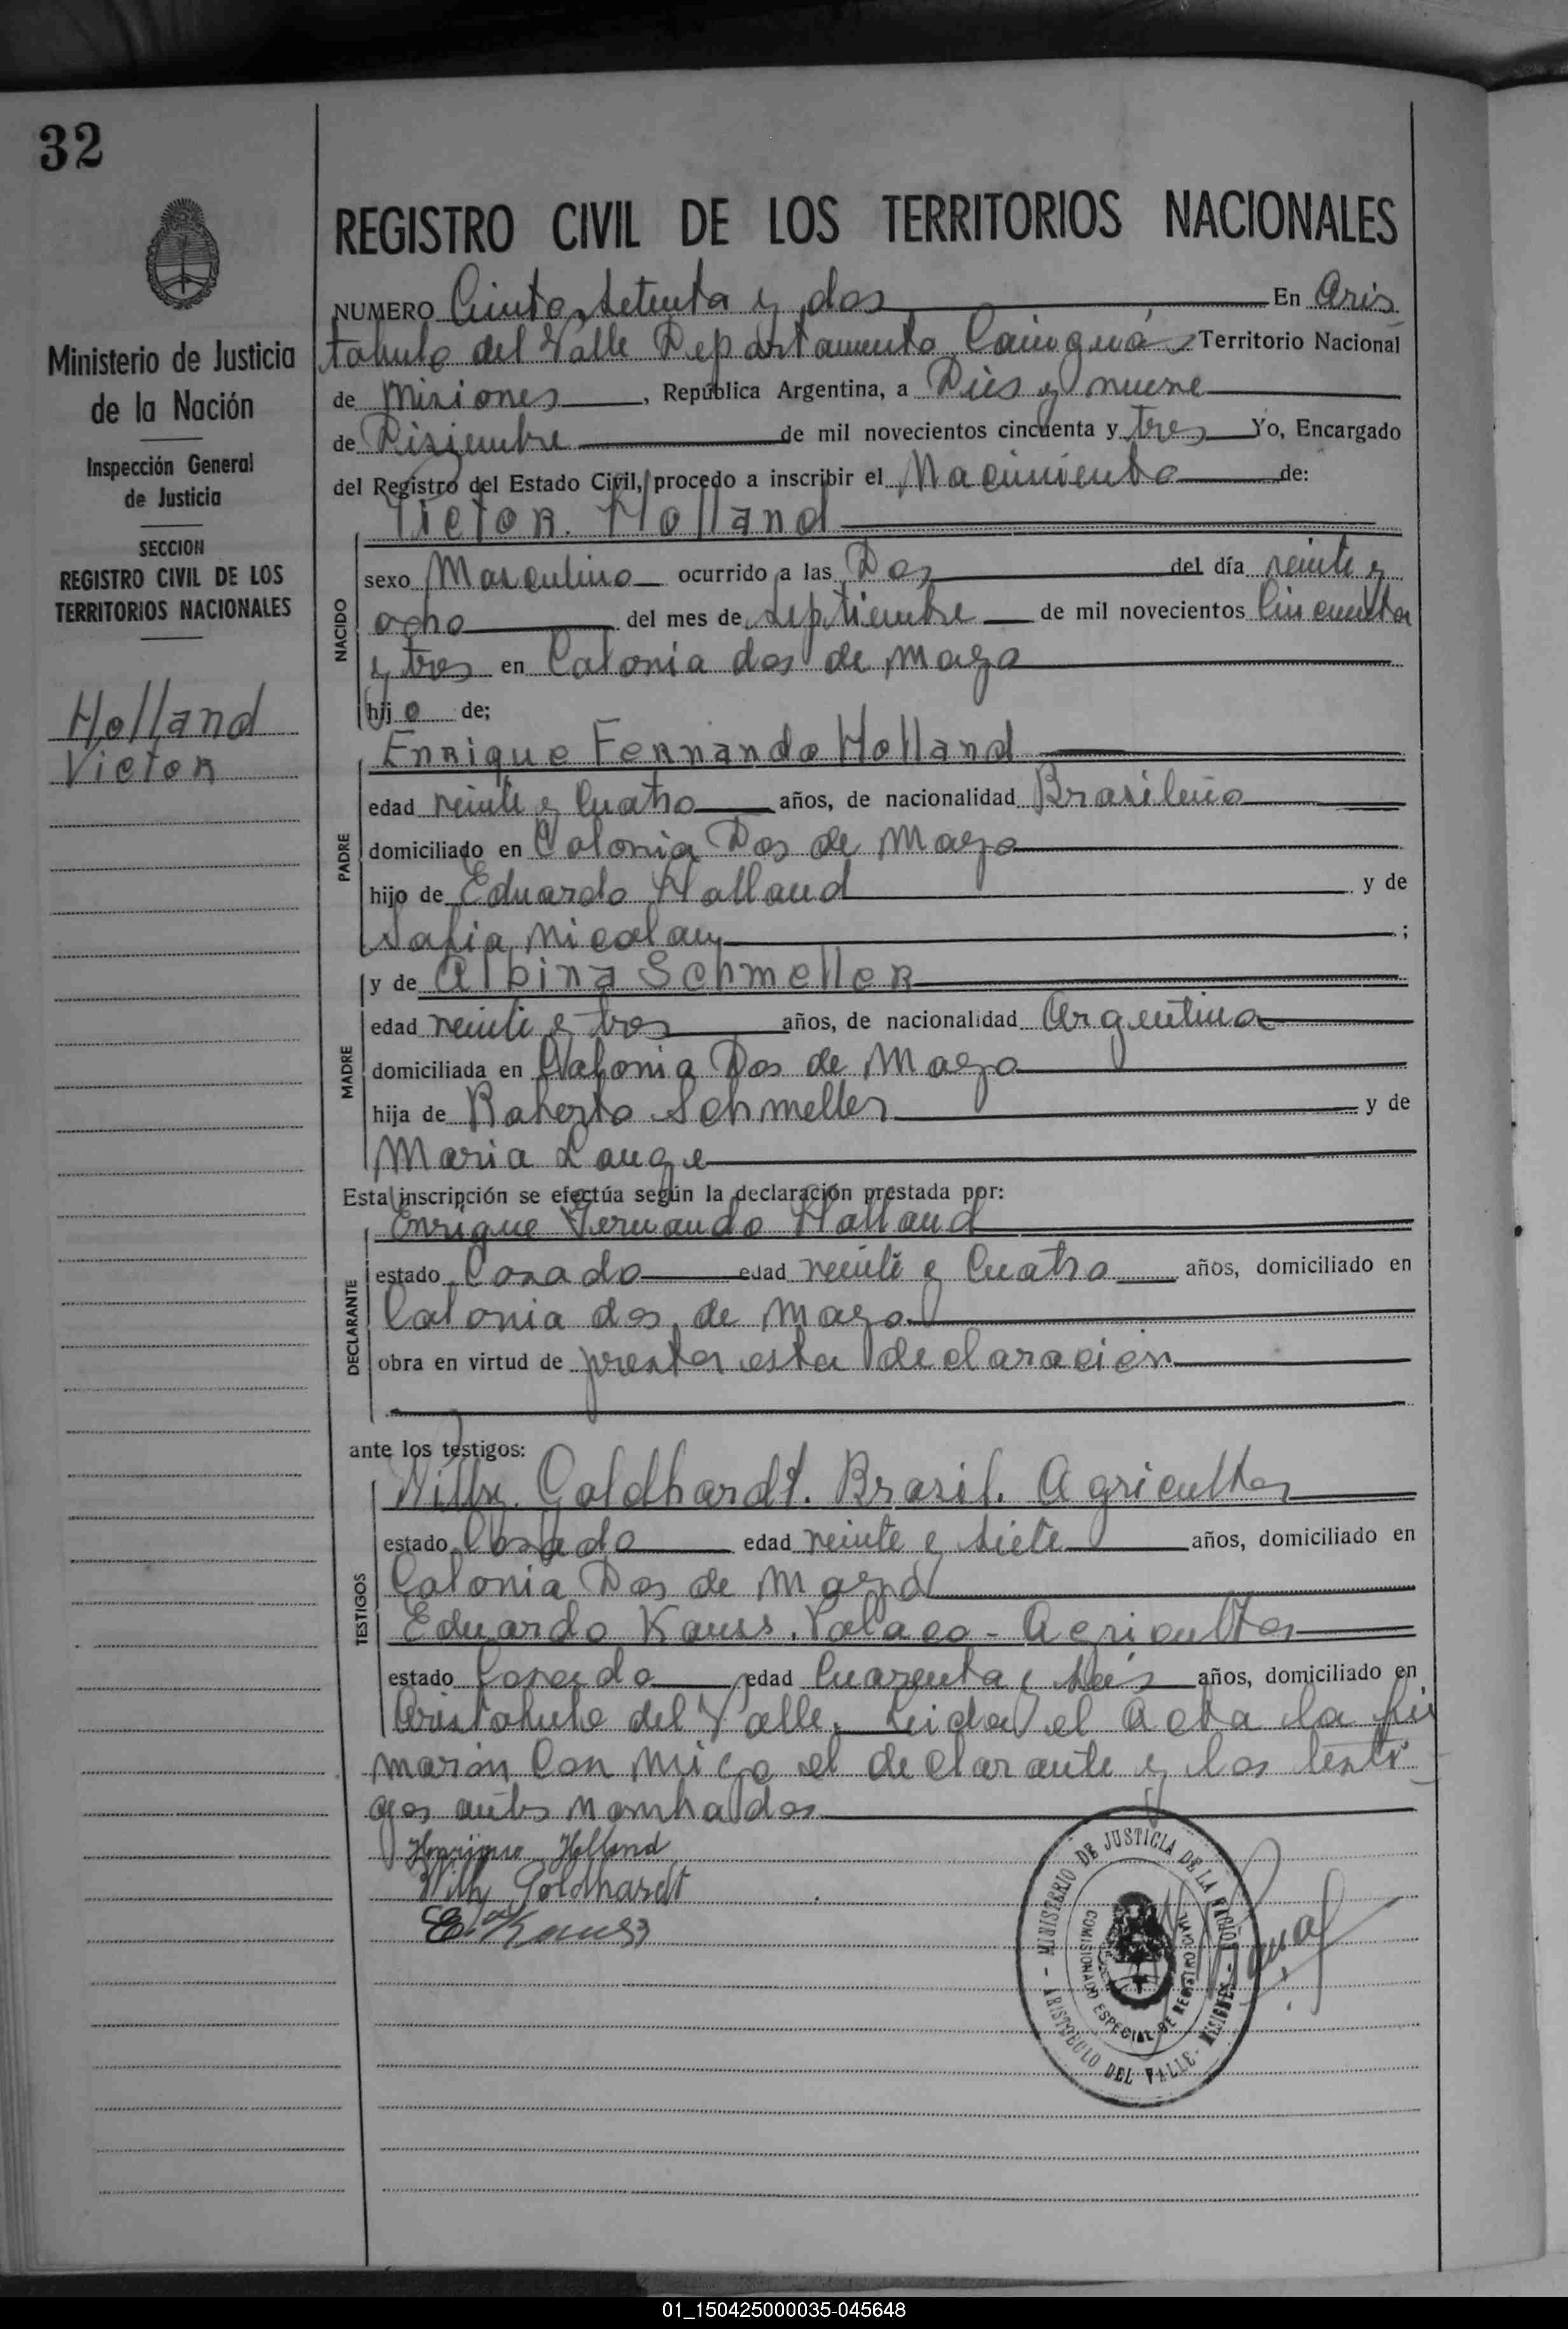 32
REGISTRO CIVIL DE LOS TERRITORIOS NACIONALES
Ministerio de Justicia
de la Nación
Inspección General
de Justicia
SECCION
REGISTRO CIVIL DE LOS
TERRITORIOS NACIONALES
Holland
Victor
NUMERO Ciento setenta y dos En Aris
tobulo del Valle Departamento Cainguás Territorio Nacional
de Misiones, República Argentina, a Dies y nueve
de Disiembre de mil novecientos cincuenta y tres Yo, Encargado
del Registro del Estado Civil, procedo a inscribir el Nacimiento de:
Victor. Holland
NACIDO
sexo Masculino ocurrido a las Dos del día veinte y
ocho del mes de Septiembre de mil novecientos Cincuenta
y tres en Colonia dos de Mayo
hijo de;
Enrique Fernando Holland
PADRE
edad veinte y Cuatro años, de nacionalidad Brasileño
domiciliado en Colonia Dos de Mayo
hijo de Eduardo Holland y de
Sofia Nicolau;
y de Albina Schmeller
MADRE
edad veinte y tres años, de nacionalidad Argentina
domiciliada en Colonia Dos de Mayo
hija de Roberto Schmeller y de
Maria Lange
Esta inscripción se efectúa según la declaración prestada por:
Enrique Fernando Holland
DECLARANTE
estado Casado edad veinte y Cuatro años, domiciliado en
Colonia dos de Mayo
obra en virtud de prestar esta declaración
ante los testigos:
Willy. Goldhardt. Brasil. Agricultor
TESTIGOS
estado Casado edad veinte y siete años, domiciliado en
Colonia Dos de Mayo
Eduardo Kauss. Polaco - Agricultor
estado Casado edad Cuarenta y seis años, domiciliado en
Aristobulo del Valle. Leida el Acta la fir
marón Con migo el declarante y los testi
gos antes nombrados
Henrique Holland
Willy Goldhardt
Ed Kauss
MINISTERIO DE JUSTICIA DE LA NACIÓN
COMISIONADO ESPECIAL DE REGISTRO CIVIL
ARISTOBULO DEL VALLE - MISIONES
01_150425000035-045648